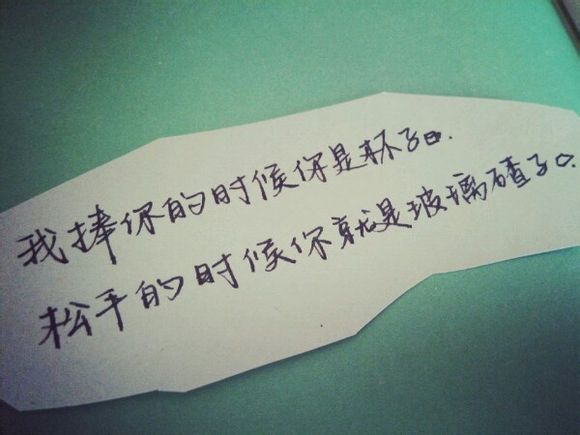 我捧你的时候你是杯子口.
松手的时候你就是玻璃碴子口.